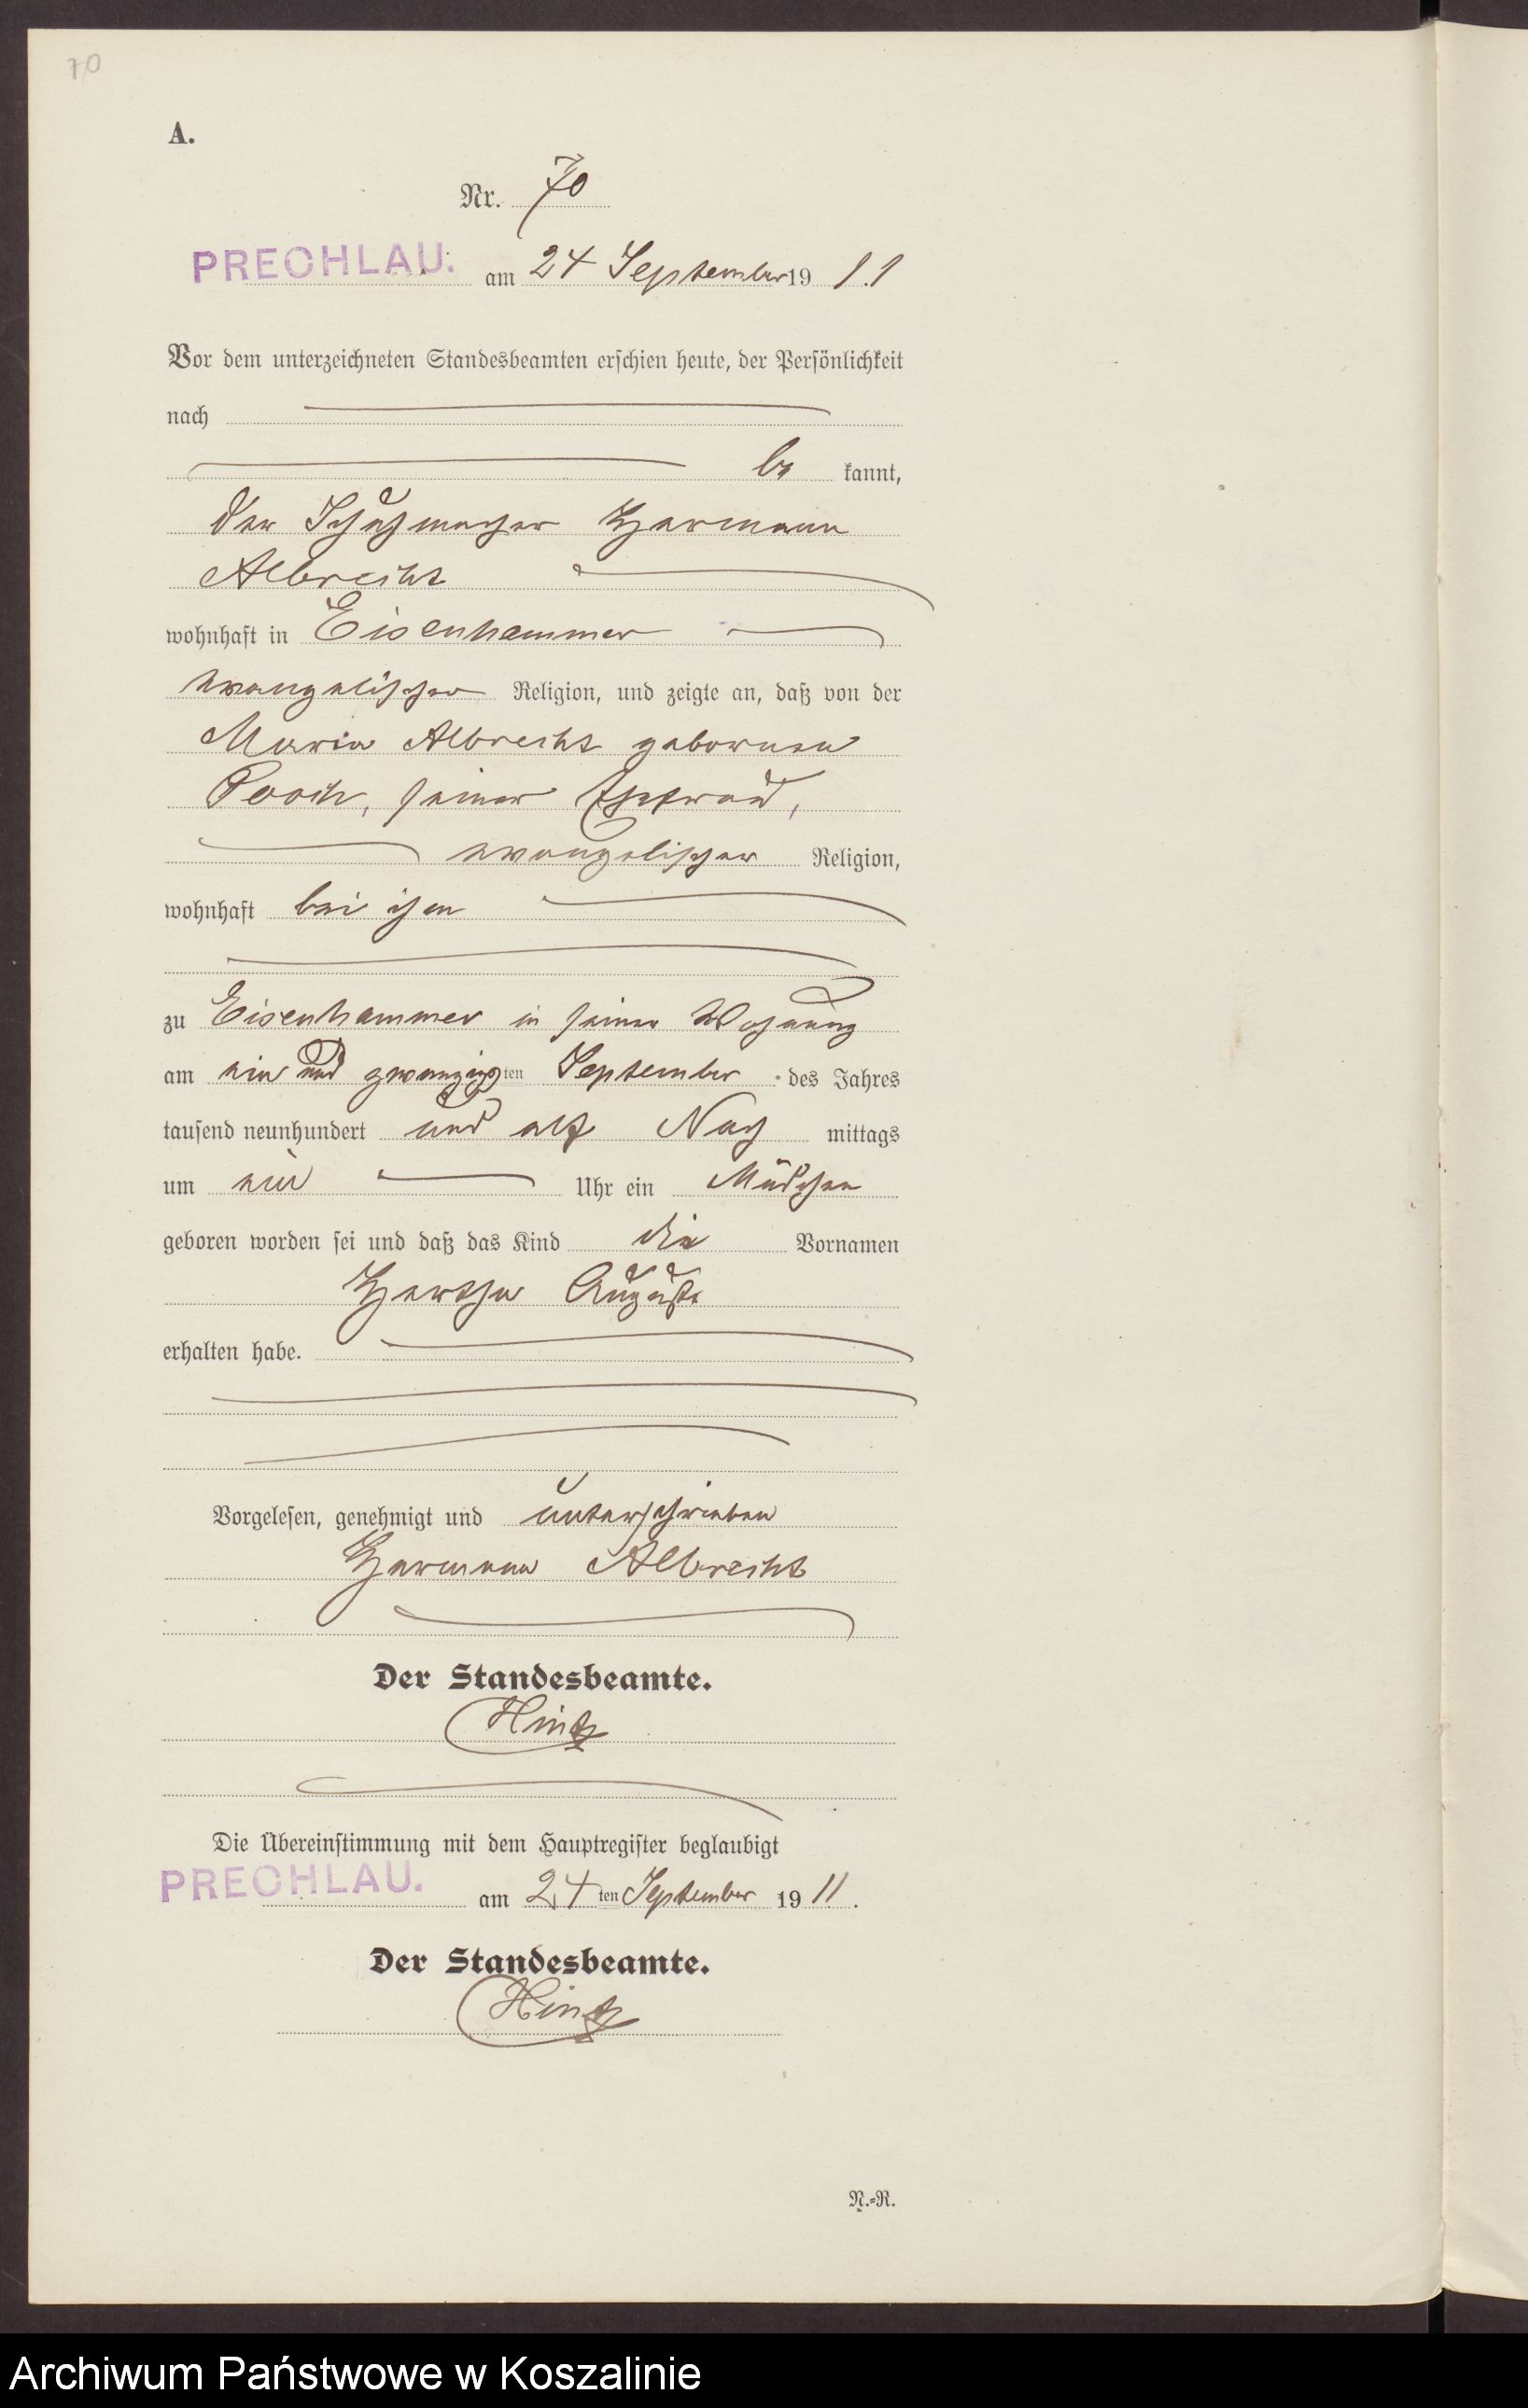 70
A.
Nr. 70
PRECHLAU. am 24 September 19 11
Vor dem unterzeichneten Standesbeamten erschien heute, der Persönlichkeit
nach
be kannt,
der Schuhmacher Hermann
Albrecht
wohnhaft in Eisenhammer
evangelischer Religion, und zeigte an, daß von der
Maria Albrecht geborenen
Pooch, seiner Ehefrau,
evangelischer Religion,
wohnhaft bei ihm
zu Eisenhammer in seiner Wohnung
am ein und zwanzigsten September des Jahres
tausend neunhundert und elf Nach mittags
um ein Uhr ein Mädchen
geboren worden sei und daß das Kind die Vornamen
Hertha Auguste
erhalten habe.
Vorgelesen, genehmigt und unterschrieben
Hermann Albrecht
Der Standesbeamte.
Hintz
Die Übereinstimmung mit dem Hauptregister beglaubigt
PRECHLAU. am 24ten September 19 11.
Der Standesbeamte.
Hintz
N.-R.
Archiwum Państwowe w Koszalinie